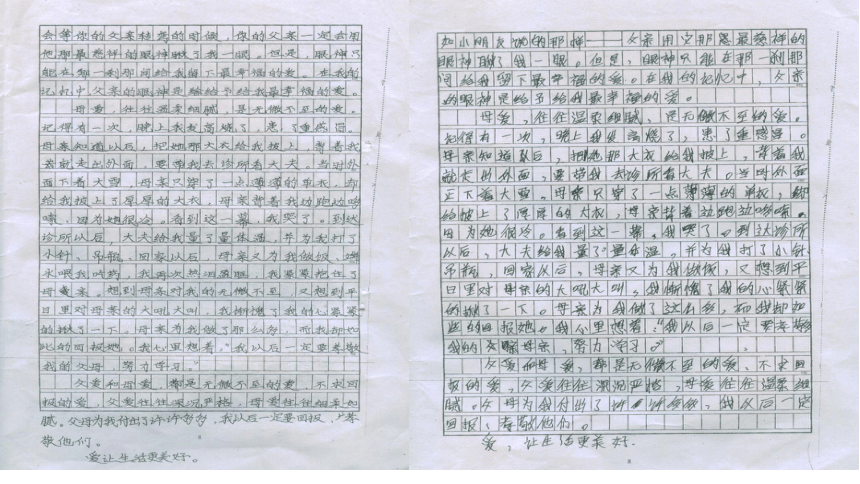 会等你的父亲转弯的时候，你的父亲一定会用
他那最慈祥的眼神瞅了我一眼。但是，眼神只
能在那一刹那间给我留下最幸福的爱。在我的
记忆中父亲的眼神是给予给我最幸福的爱。
母爱，往往温柔细腻，是无微不至的爱。
记得有一次，晚上我发高烧了，患了重感冒。
母亲知道以后，把她那大衣给我披上，背着我
我就走出外面，要带我去诊所看大夫，当时外
面下着大雪，母亲只穿了一点薄薄的单衣，却
给我披上了厚厚的大衣，母亲背着我边跑边咳
嗽，因为她很冷。看到这一幕，我哭了。到达
诊所以后，大夫给我量了量体温，并为我打了
小针、吊瓶，回家以后，母亲又为我做饭，
水喂我吃药，我再次热泪盈眶，我紧紧抱住了
母亲。想到母亲对我的无微不至，又想到平
日里对母亲的大吼大叫，我惭愧了我的心紧紧
的揪了一下，母亲为我做了那么多，而我却如
此的回报她。我心里想着："我以后一定要孝敬
我的父母，努力学习。"
父爱和母爱，都是无微不至的爱，不求回
报的爱，父爱往往深沉严格，母爱往往细柔如
腻。父母为我付出了许许多多，我以后一定要回报、孝
敬他们。
爱让生活更美好。
如小朋友说的那样——父亲用它那总最慈祥的
眼神瞅了我一眼。但是，眼神只能在那一刹那
间给我留下最幸福的爱。在我的记忆中，父亲
的眼神是给予给我最幸福的爱。
母爱，往往温柔细腻，是无微不至的爱。
记得有一次，晚上我发高烧了，患了重感冒。
母亲知道以后，把她那大衣给我披上，背着我
就走出外面，要带我去诊所看大夫。当时外面
正下着大雪。母亲只穿了一点薄薄的单衣，却
给披上了厚厚的大衣，母亲背着边跑边咳嗽。
因为她很冷。看到这一幕，我哭了。到达诊所
以后，大夫给我量了量体温。并为我打了小针
吊瓶，回家以后，母亲又为我做饭，又想到平
日里对母亲的大吼大叫。我惭愧了我的心紧紧
的揪了一下。母亲为我做了这么多，而我却如
此的回报她。我心里想着："我以后一定要孝敬
我的父母亲，努力学习。"
父爱和母爱，都是无微不至的爱，不求回
报的爱，父爱往往深沉严格，母爱往往温柔细
腻。父母为我付出了许许多多，我以后一定
回报、孝敬他们。
爱，让生活更美好。